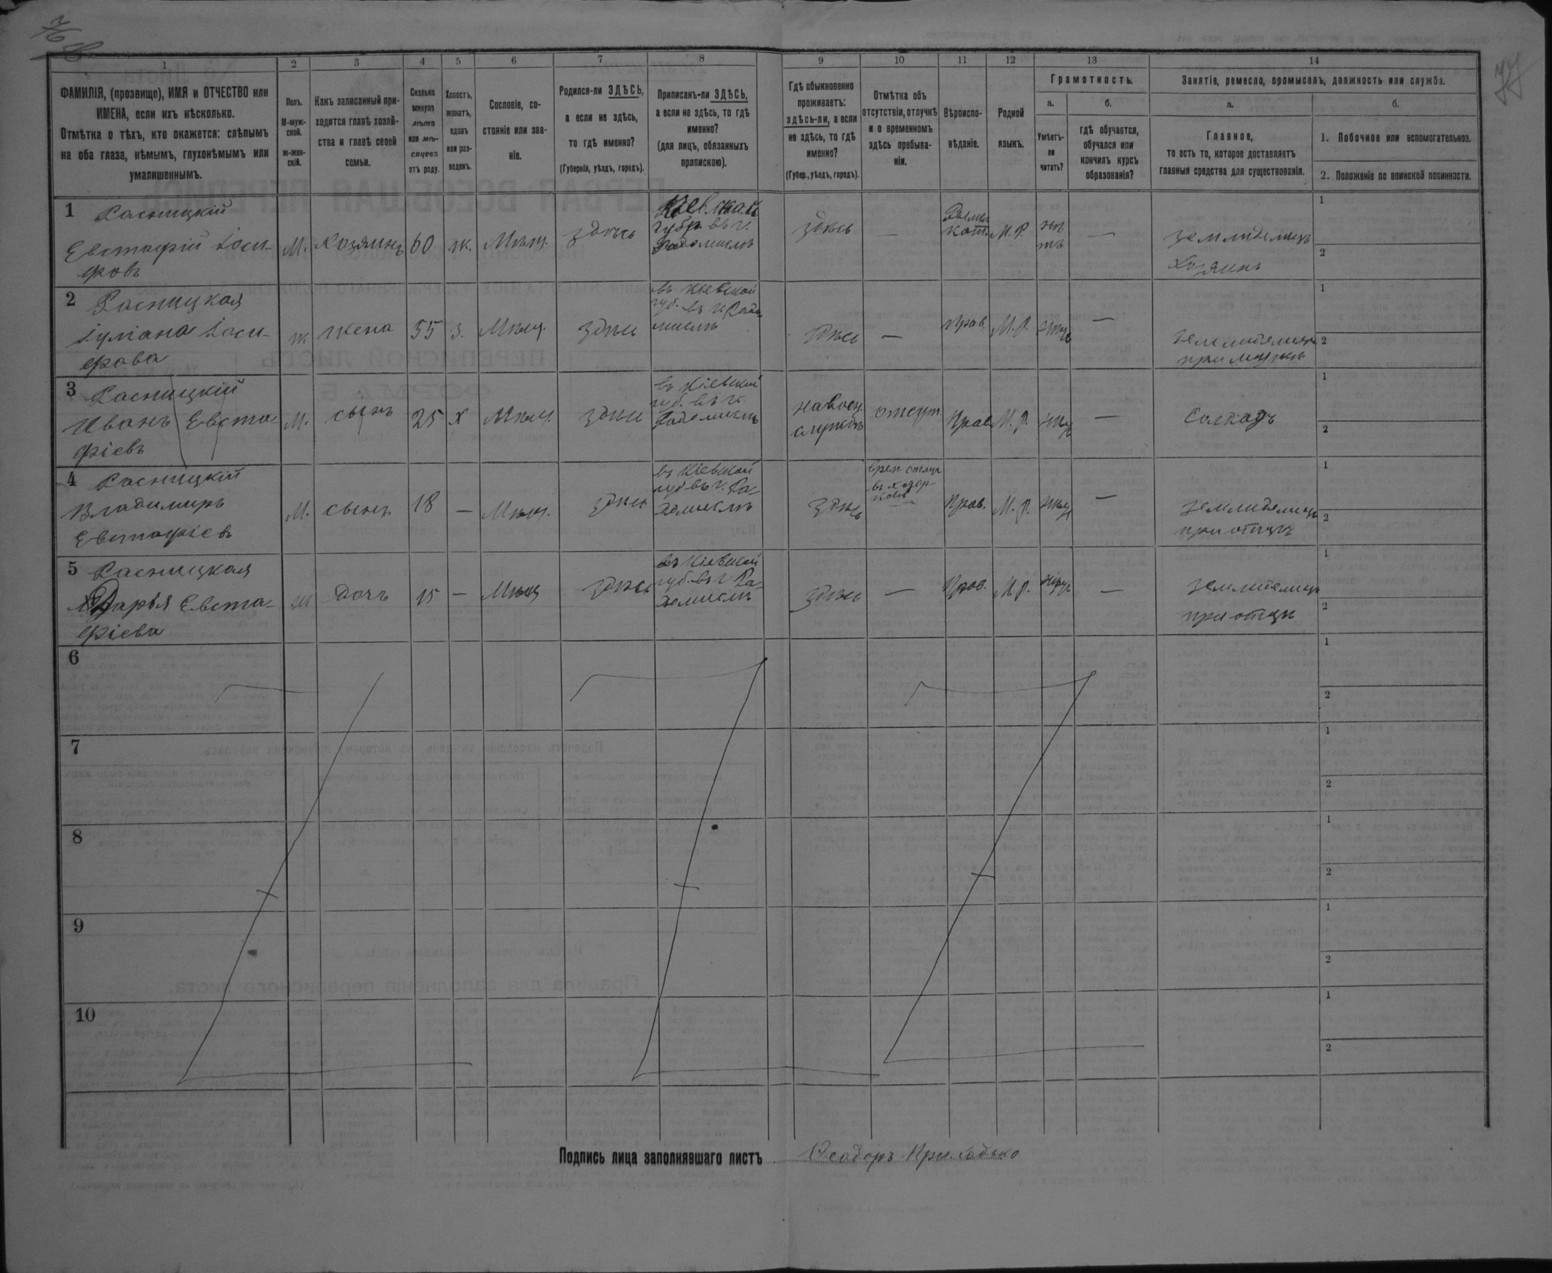 76
77
1
2
3
4
5
6
7
8
9
10
11
12
13
14
ФАМИЛІЯ, (прозвище), ИМЯ и ОТЧЕСТВО или
ИМЕНА, если ихъ нѣсколько.
Отмѣтка о тѣхъ, кто окажется: слѣпымъ
на оба глаза, нѣмымъ, глухонѣмымъ или
умалишеннымъ.
Полъ.
М-муж-
ской.
ж-жен-
скій.
Какъ записанный при-
ходится главѣ хозяй-
ства и главѣ своей
семьи.
Сколько
минуло
лѣтъ
или мѣ-
сяцевъ
отъ роду.
Холостъ,
женатъ,
вдовъ
или раз-
веденъ.
Сословіе, со-
стояніе или зва-
ніе.
Родился-ли ЗДѢСЬ,
а если не здѣсь,
то гдѣ именно?
(Губернія, уѣздъ, городъ).
Приписанъ-ли ЗДѢСЬ,
а если не здѣсь, то гдѣ
именно?
(для лицъ, обязанныхъ
припискою).
Гдѣ обыкновенно
проживаетъ:
здѣсь-ли, а если
не здѣсь, то гдѣ
именно?
(Губер., уѣздъ, городъ).
Отмѣтка объ
отсутствіи, отлучкѣ
и о временномъ
здѣсь пребыва-
ніи.
Вѣроиспо-
вѣданіе.
Родной
языкъ.
Грамотность.
а.
б.
Умѣетъ-
ли
читать?
гдѣ обучается,
обучался или
кончилъ курсъ
образованія?
Занятіе, ремесло, промыселъ, должность или служба.
а.
б.
Главное,
то есть то, которое доставляетъ
главныя средства для существованія.
1. Побочное или вспомогательное.
2. Положеніе по воинской повинности.
1 Расницкій
Евстафій Іоси-
фовъ
М. хозяинъ 60 ж. Мѣщ. здѣсь
Кіевская
губр. въ г.
Радомыслѣ
здѣсь —
Римс.
кат. М.Р. —
земледѣлецъ
Хозяинъ
1
2
2 Расницкая
Іуліана Іоси-
фова
ж жена 55 з. Мѣщ. здѣсь
въ Кіевской
губ. въ г. Радо
мыслѣ
здѣсь — прав М.Р. —
земледѣлица
при мужѣ
1
2
3 Расницкій
Иванъ Евста-
фіевъ
М. сынъ 25 х Мѣщ. здѣсь
въ Кіевской
губ. въ г.
Радомыслѣ
на воен
службѣ отсут Прав М.Р. —
Солдатъ
1
2
4 Расницкій
Владимиръ
Евстафіевъ
М. сынъ 18 — Мѣщ. здѣсь
въ Кіевской
губ. въ г. Ра-
домыслѣ
здѣсь
Прав. М.Р. —
земледѣлецъ
при отцѣ
1
2
5 Расницкая
Дарья Евста-
фіева
ж дочь 15 — Мѣщ здѣсь
въ Кіевской
губ. въ г. Ра-
домыслѣ
здѣсь — Прав. М.Р. —
земледѣлица
при отцѣ
1
2
6
1
2
7
1
2
8
1
2
9
1
2
10
1
2
Подпись лица заполнявшаго листъ Ѳеодоръ